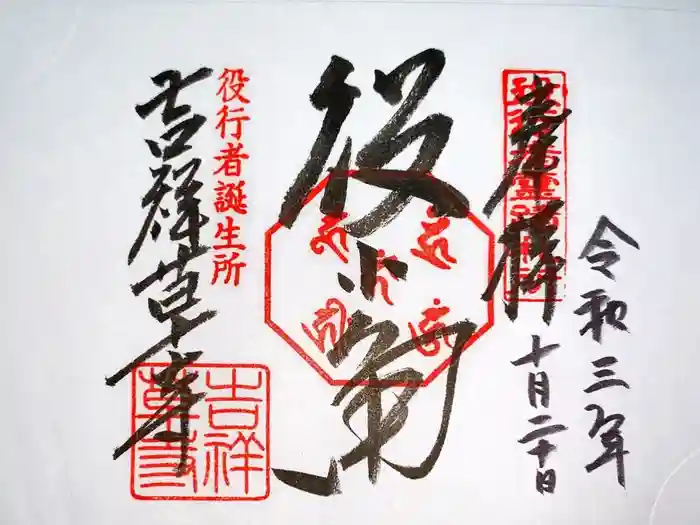 奉拝
令和三年
十月二十日
役小角
役行者誕生所
吉祥草寺
吉祥
草寺